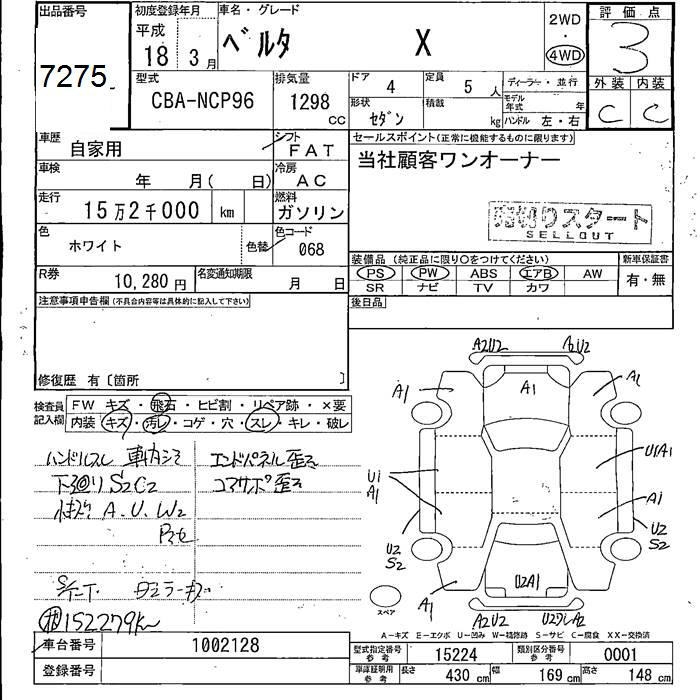 出品番号
7275
初度登録年月
平成
18 3月
車名・グレード
ベルタ X
2WD
・
4WD
評価点
3
外装 内装
C C
型式
CBA-NCP96
排気量
1298 CC
ドア 4
定員 5 人
ディーラー・並行
形状 セダン
積載 kg
モデル年式 年
ハンドル 左・右
車歴 自家用
シフト FAT
車検 年 月( 日)
冷房 AC
走行 15万2千000 km
燃料 ガソリン
色 ホワイト
色替
色コード 068
R券 10,280円
名変通知期限 月 日
セールスポイント(正常に機能するものに限ります)
当社顧客ワンオーナー
売切りスタート
SELLOUT
装備品 (純正品に限り○をつけてください)
PS PW ABS エアB AW
SR ナビ TV カワ
新車保証書
有・無
後日品
注意事項申告欄(不具合内容等は具体的に記入して下さい)
修復歴 有〔箇所 〕
検査員記入欄
FW キズ・飛石・ヒビ割・リペア跡・×要
内装 キズ・汚レ・コゲ・穴・スレ・キレ・破レ
ハンドルスレ 車内シミ
エンドパネル歪ミ
下廻りS2C2
コアサポ歪ミ
A.U.W2
152279km
A2U2 A2U2
A1 A1 A1
U1 A1 U1A1
A1
U2 S2 U2 S2
U2A1
A1
A2U2
スペア
A-キズ E-エクボ U-凹み W-補修跡 S-サビ C-腐食 XX-交換済
車台番号 1002128
登録番号
型式指定番号 参考 15224
類別区分番号 参考 0001
車庫証明用 参考 長さ 430 cm 幅 169 cm 高さ 148 cm